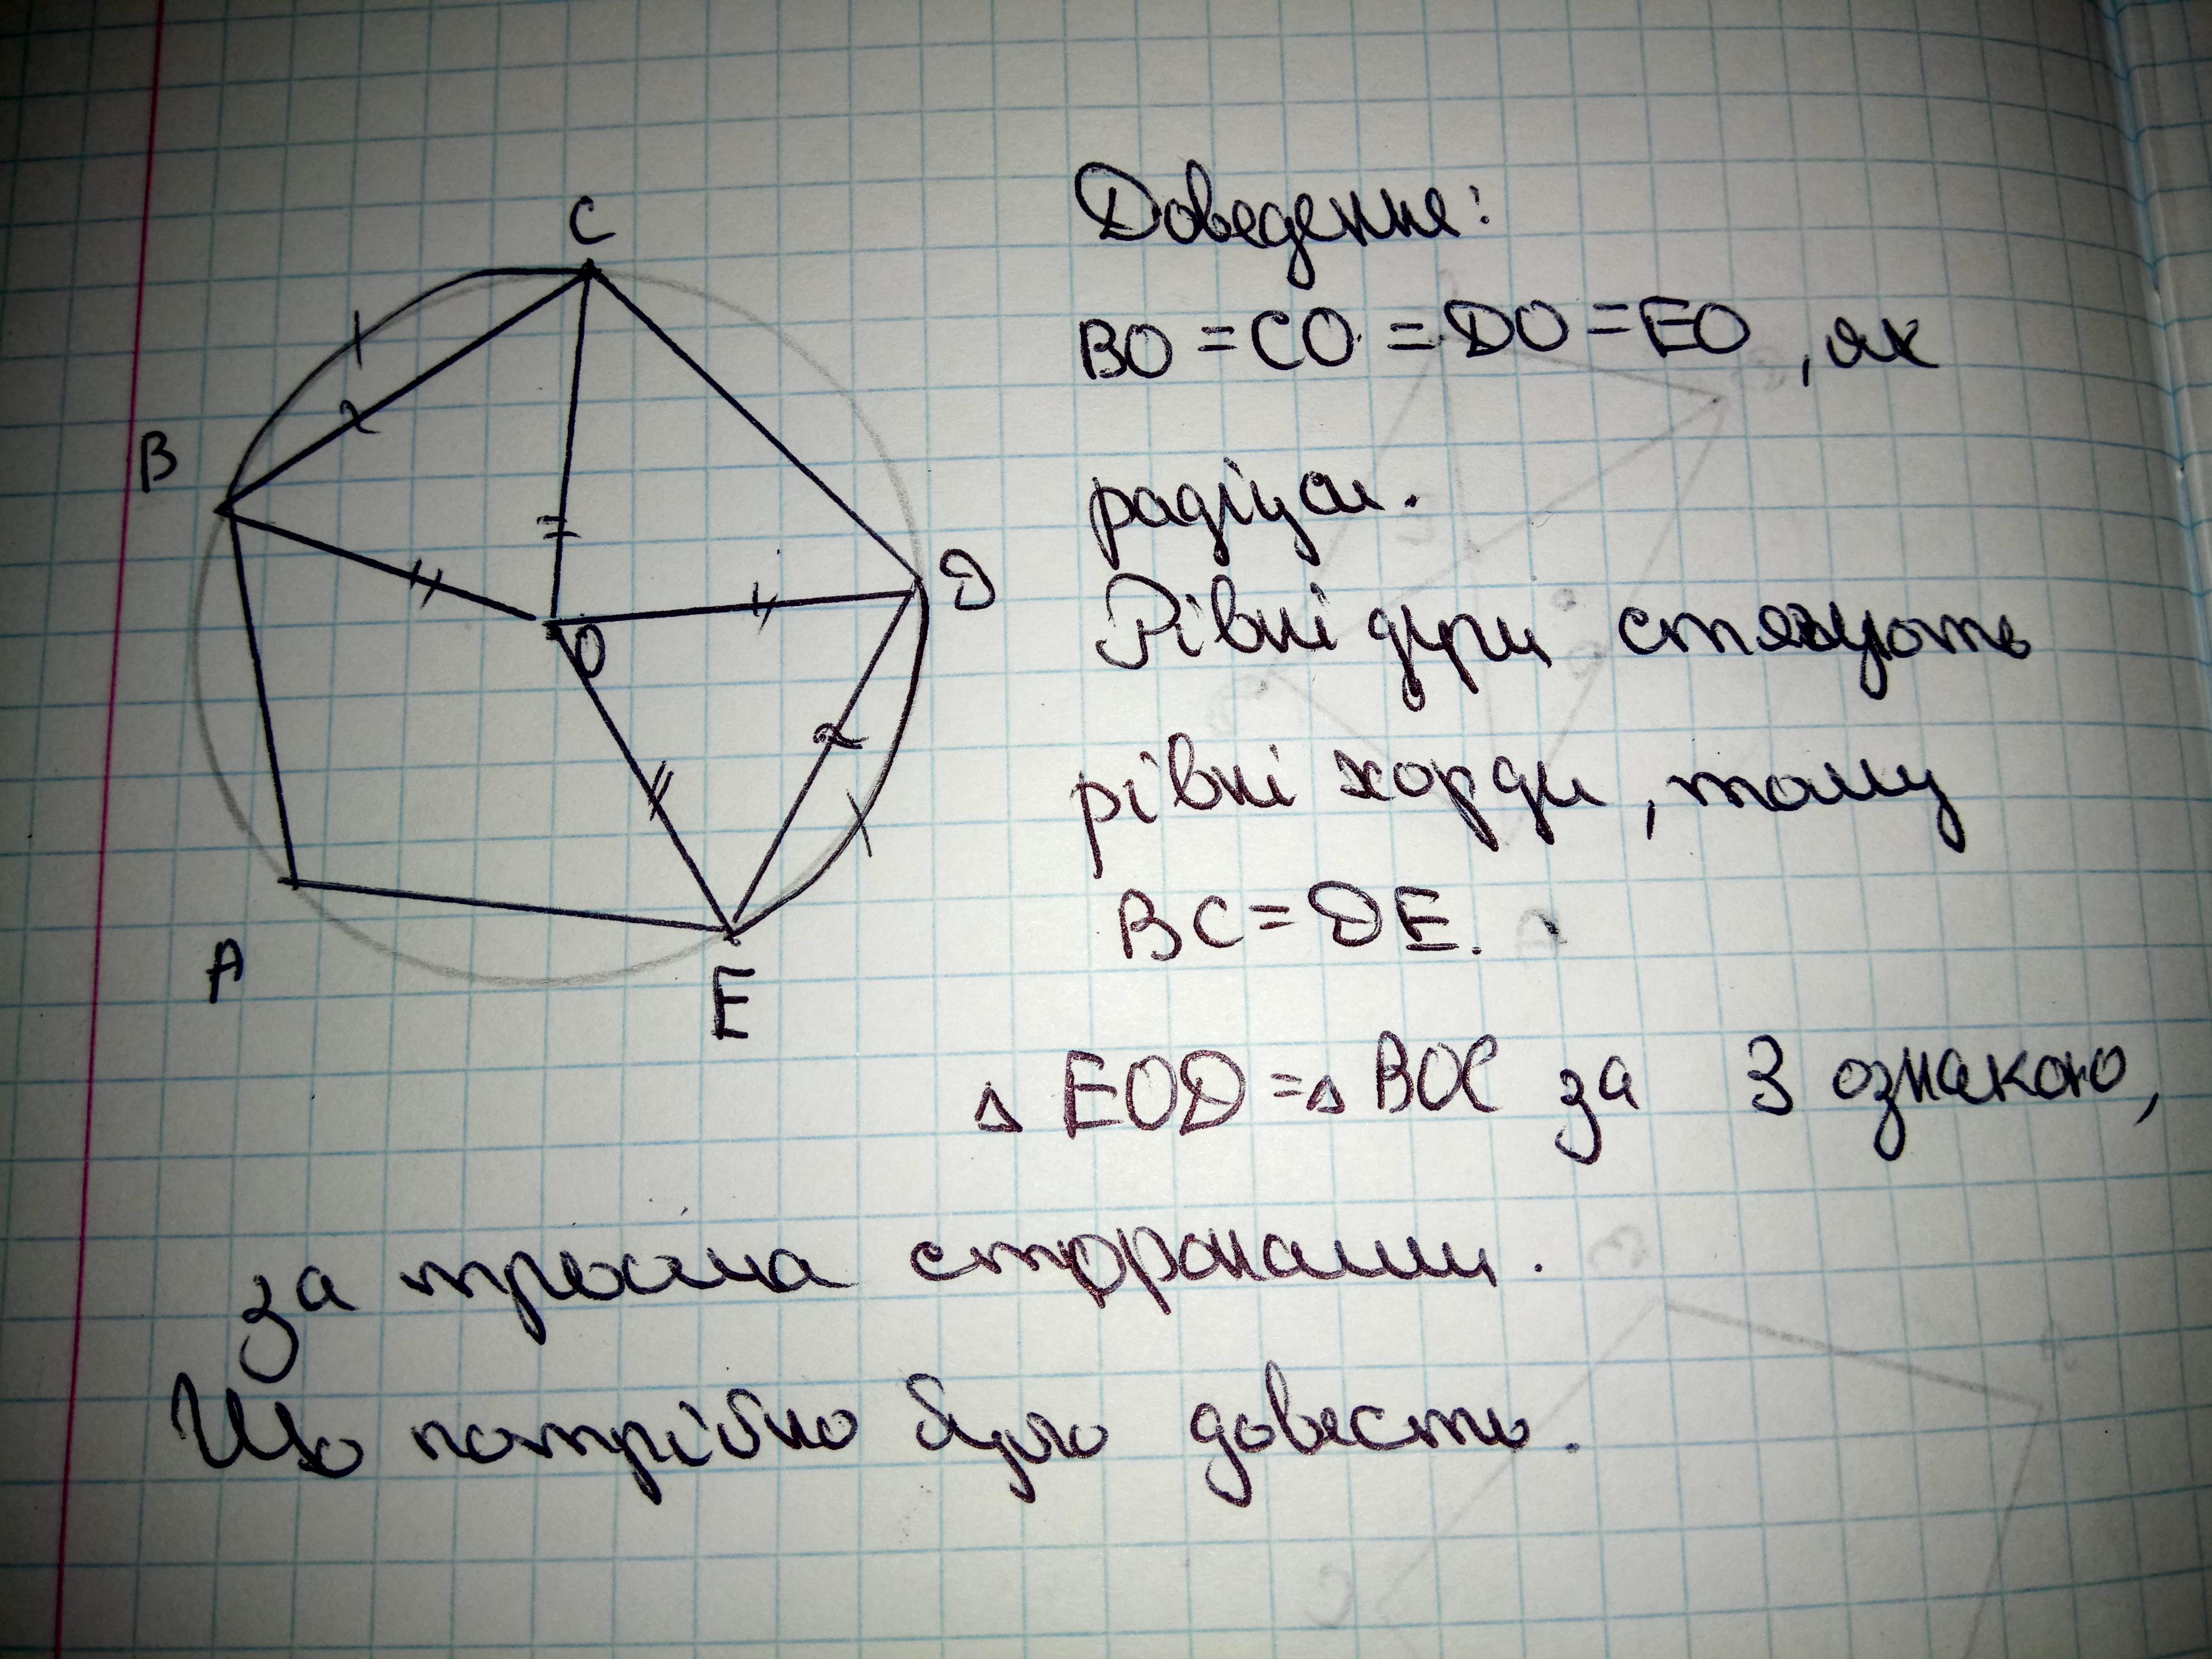 C
B
D
O
A
E
Доведення:
BO = CO = DO = EO, як
радіуси.
Рівні дуги стягують
рівні хорди, тому
BC = DE.
△ EOD = △ BOC за 3 ознакою,
за трьома сторонами.
Що потрібно було довесть.